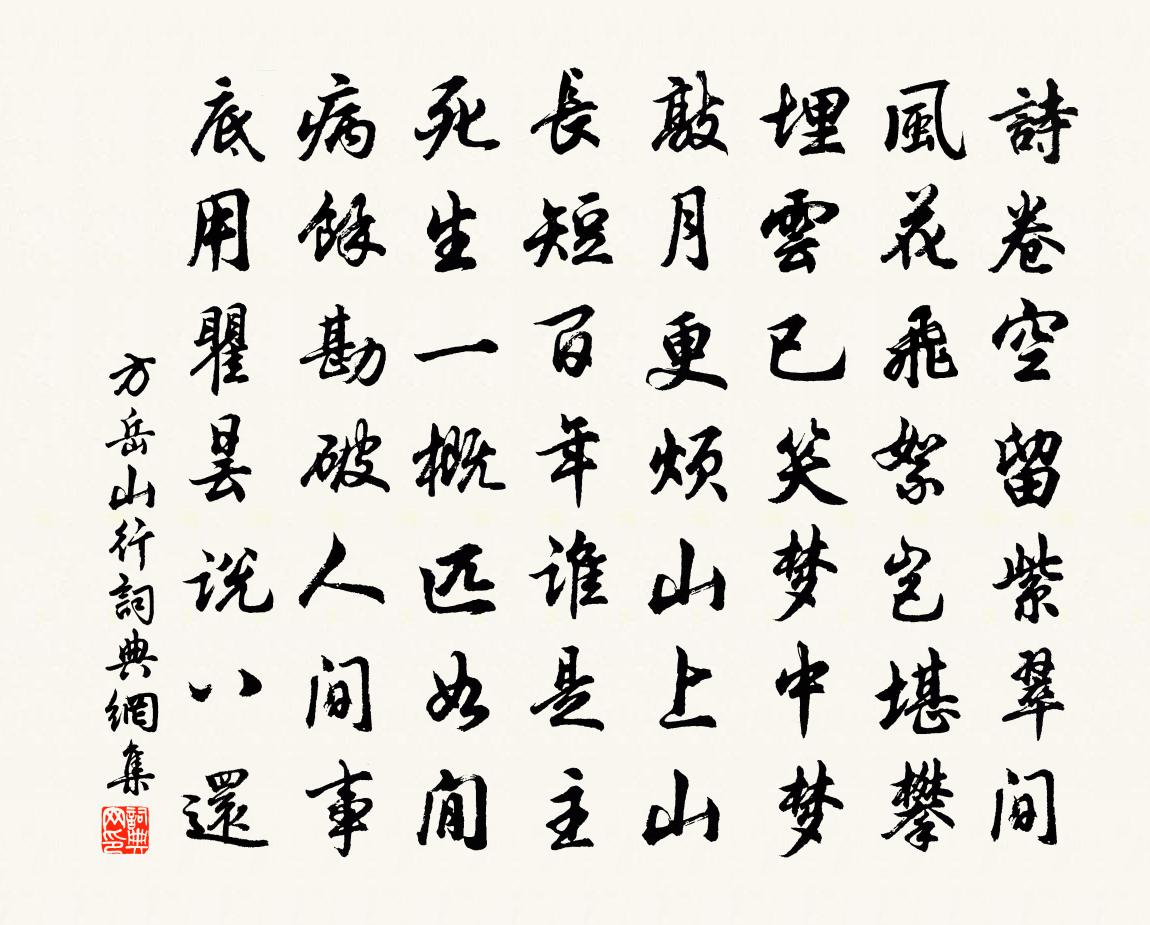 詩卷空留紫翠间
風花飛絮岂堪攀
埋雲已笑梦中梦
敲月更烦山上山
長短百年谁是主
死生一概匹如间
病餘勘破人间事
底用瞿昙说八還
方岳山行詞典網集
詞典网印